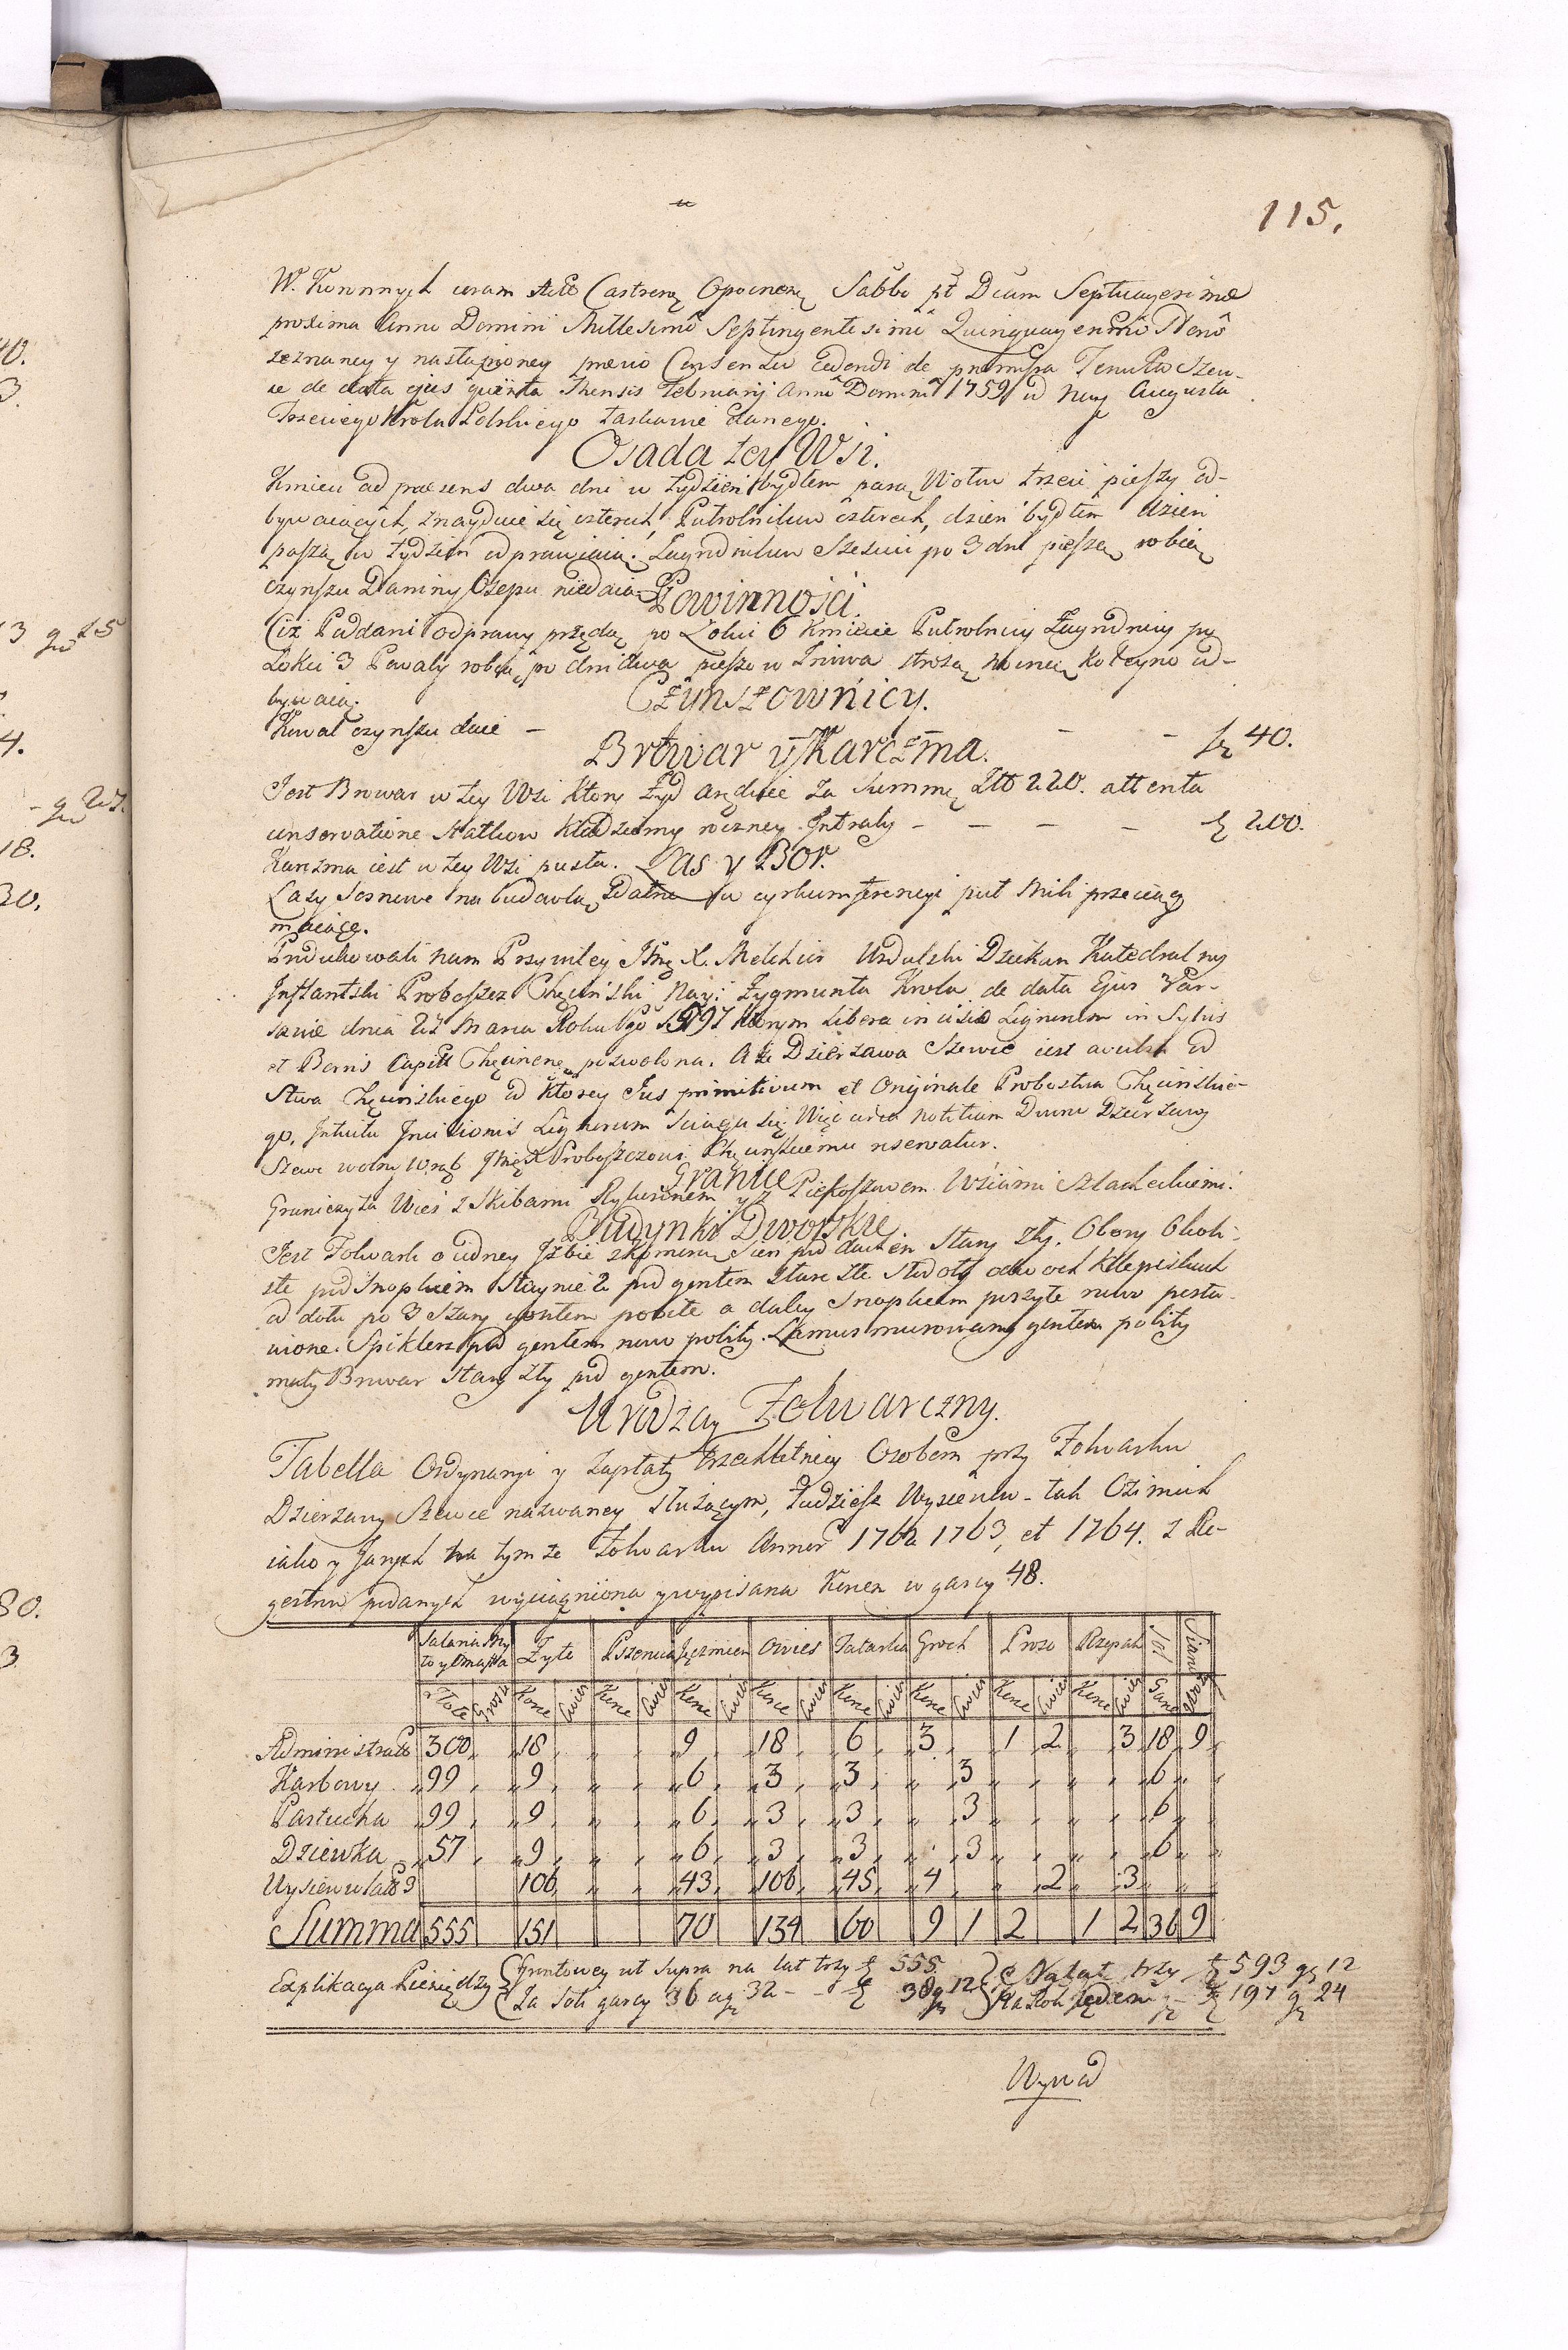 115.
W. Konnnych coram Actis Castren. Opocznen. Sabbo pt Dcam Septuagesimae
proxima Anno Domini Millesimo Septingentesimo Quinquagesimo Nono
zeznaney y nastąpioney previo Consensu Cedendi de praemissa Tenuta Szew-
ce de data ejus quinta Mensis Februarij Anno Domini 1759 od Nay Augusta
Trzeciego Krola Polskiego łaskawie danego.
Osada tey Wsi.
Kmieci ad praesens dwa dni w tydzień bydłem parą Wołow trzeci pieszy od-
bywaiących znayduie się czterech, Pułrolnikow czterech, dzień bydłem dzień
pieszą w tydzień odprawuią. Zagrodnikow Sześciu po 3 dni piesze robią
czynszu Daniny Osepu niedaią.
Powinności.
Ciż Poddani oprawy przędą po Łokci 6 Kmiecie Pułrolnicy Zagrodnicy po
Łokci 3 Powały robią po dni dwa piesze w żniwa stróżą nocną koleyno od-
bywaią.
Czynszownicy.
Kowal czynszu daie - - - zł 40.
Browar y Karczma.
Jest Browar w tey Wsi ktory Żyd aręduie za Summę Złł 220. attenta
conservatione Statkow kładziemy roczney Intraty - - - - zł 200.
Karczma iest w tey Wsi pusta.
Las y Bor.
Lasy Sosnowe na budowlą zdatne w cyrkumferencyi puł Mili przeciąg
maiące.
Produkowali nam Przywiley JMę X. Melchior Dziekan Katedralny
Inflantski Proboszcz Chęciński Nay: Zygmunta Krola de data Ejus Var-
saviae dnia 27 Marca Roku 1597 ktorym Libera incisio Lignorum in Sylvis
et Boris Captt Chęcinen. pozwolona. A że Dzierżawa Szewce iest avulsa od
Stwa Chęcinskiego od ktorey Jus primitivum et Originale Probostwa Chęcińskie-
go, Intuitu Incisionis Lignorum sciąga się, Więc circa notitiam Dzierżawy
Szewc wolny wrąb JMę X Proboszczowi Chęcińskiemu reservatur.
Granice
Graniczy ta Wieś z Skibami Rykoszynem y z Piekoszowem Wsiami Szlacheckiemi.
Budynki Dworskie
Jest Folwark o iedney Izbie z komorą Sien pod dachem Stary zły. Obory Około
złe pod Snopkiem Staynie 2 pod gontem stare złe Stodoły o dwoch klepiskach
od dołu po 3 Szary gontem pobite a daley Snopkiem poszyte nowo posta-
wione. Spiklerz pod gontem nowo pobity. Lamus murowany gontem pobity
mały Browar stary zły pod gontem.
Urodzay Folwarczny.
Tabella Ordynaryi y Zapłaty Trzechletniey Osobom przy Folwarku
Dzierżawy Szewce nazwaney służącym, tudzież Wysiewu tak Ozimich
iako y Jarych na tymże Folwarku Annor 1762 1763, et 1764. z Re-
gestrow podanych wyciągniona y wypisana Korca w garcy 48.
Salaria Zyto Pszenica Jęczmien Owies Tatarka Groch Proso Rzepak Sol
Złote Grosze Korce Cwier Korce Cwier Korce Cwier Korce Cwier Korce Cwier Korce Cwier Korce Cwier Korce Cwier Garce
Administrator 300 18 9 18 6 3 1 2 3 18 9
Karbowy 99 9 6 3 3 3 6
Pastucha 99 9 6 3 3 3 6
Dziewka 57 9 6 3 3 3 6
Wysiew w lat 3 106 43 106 45 4 2 3
Summa 555 151 70 134 60 9 1 2 1 2 36 9
Explikacya Pieniędzy Gruntowey ut supra na lat trzy zł 555. Na lat trzy zł 593 gr 12
Za Soli garcy 36 a gr 32 - - zł 38 gr 12 Na Rok Jeden zł 197 gr 24
Wywod